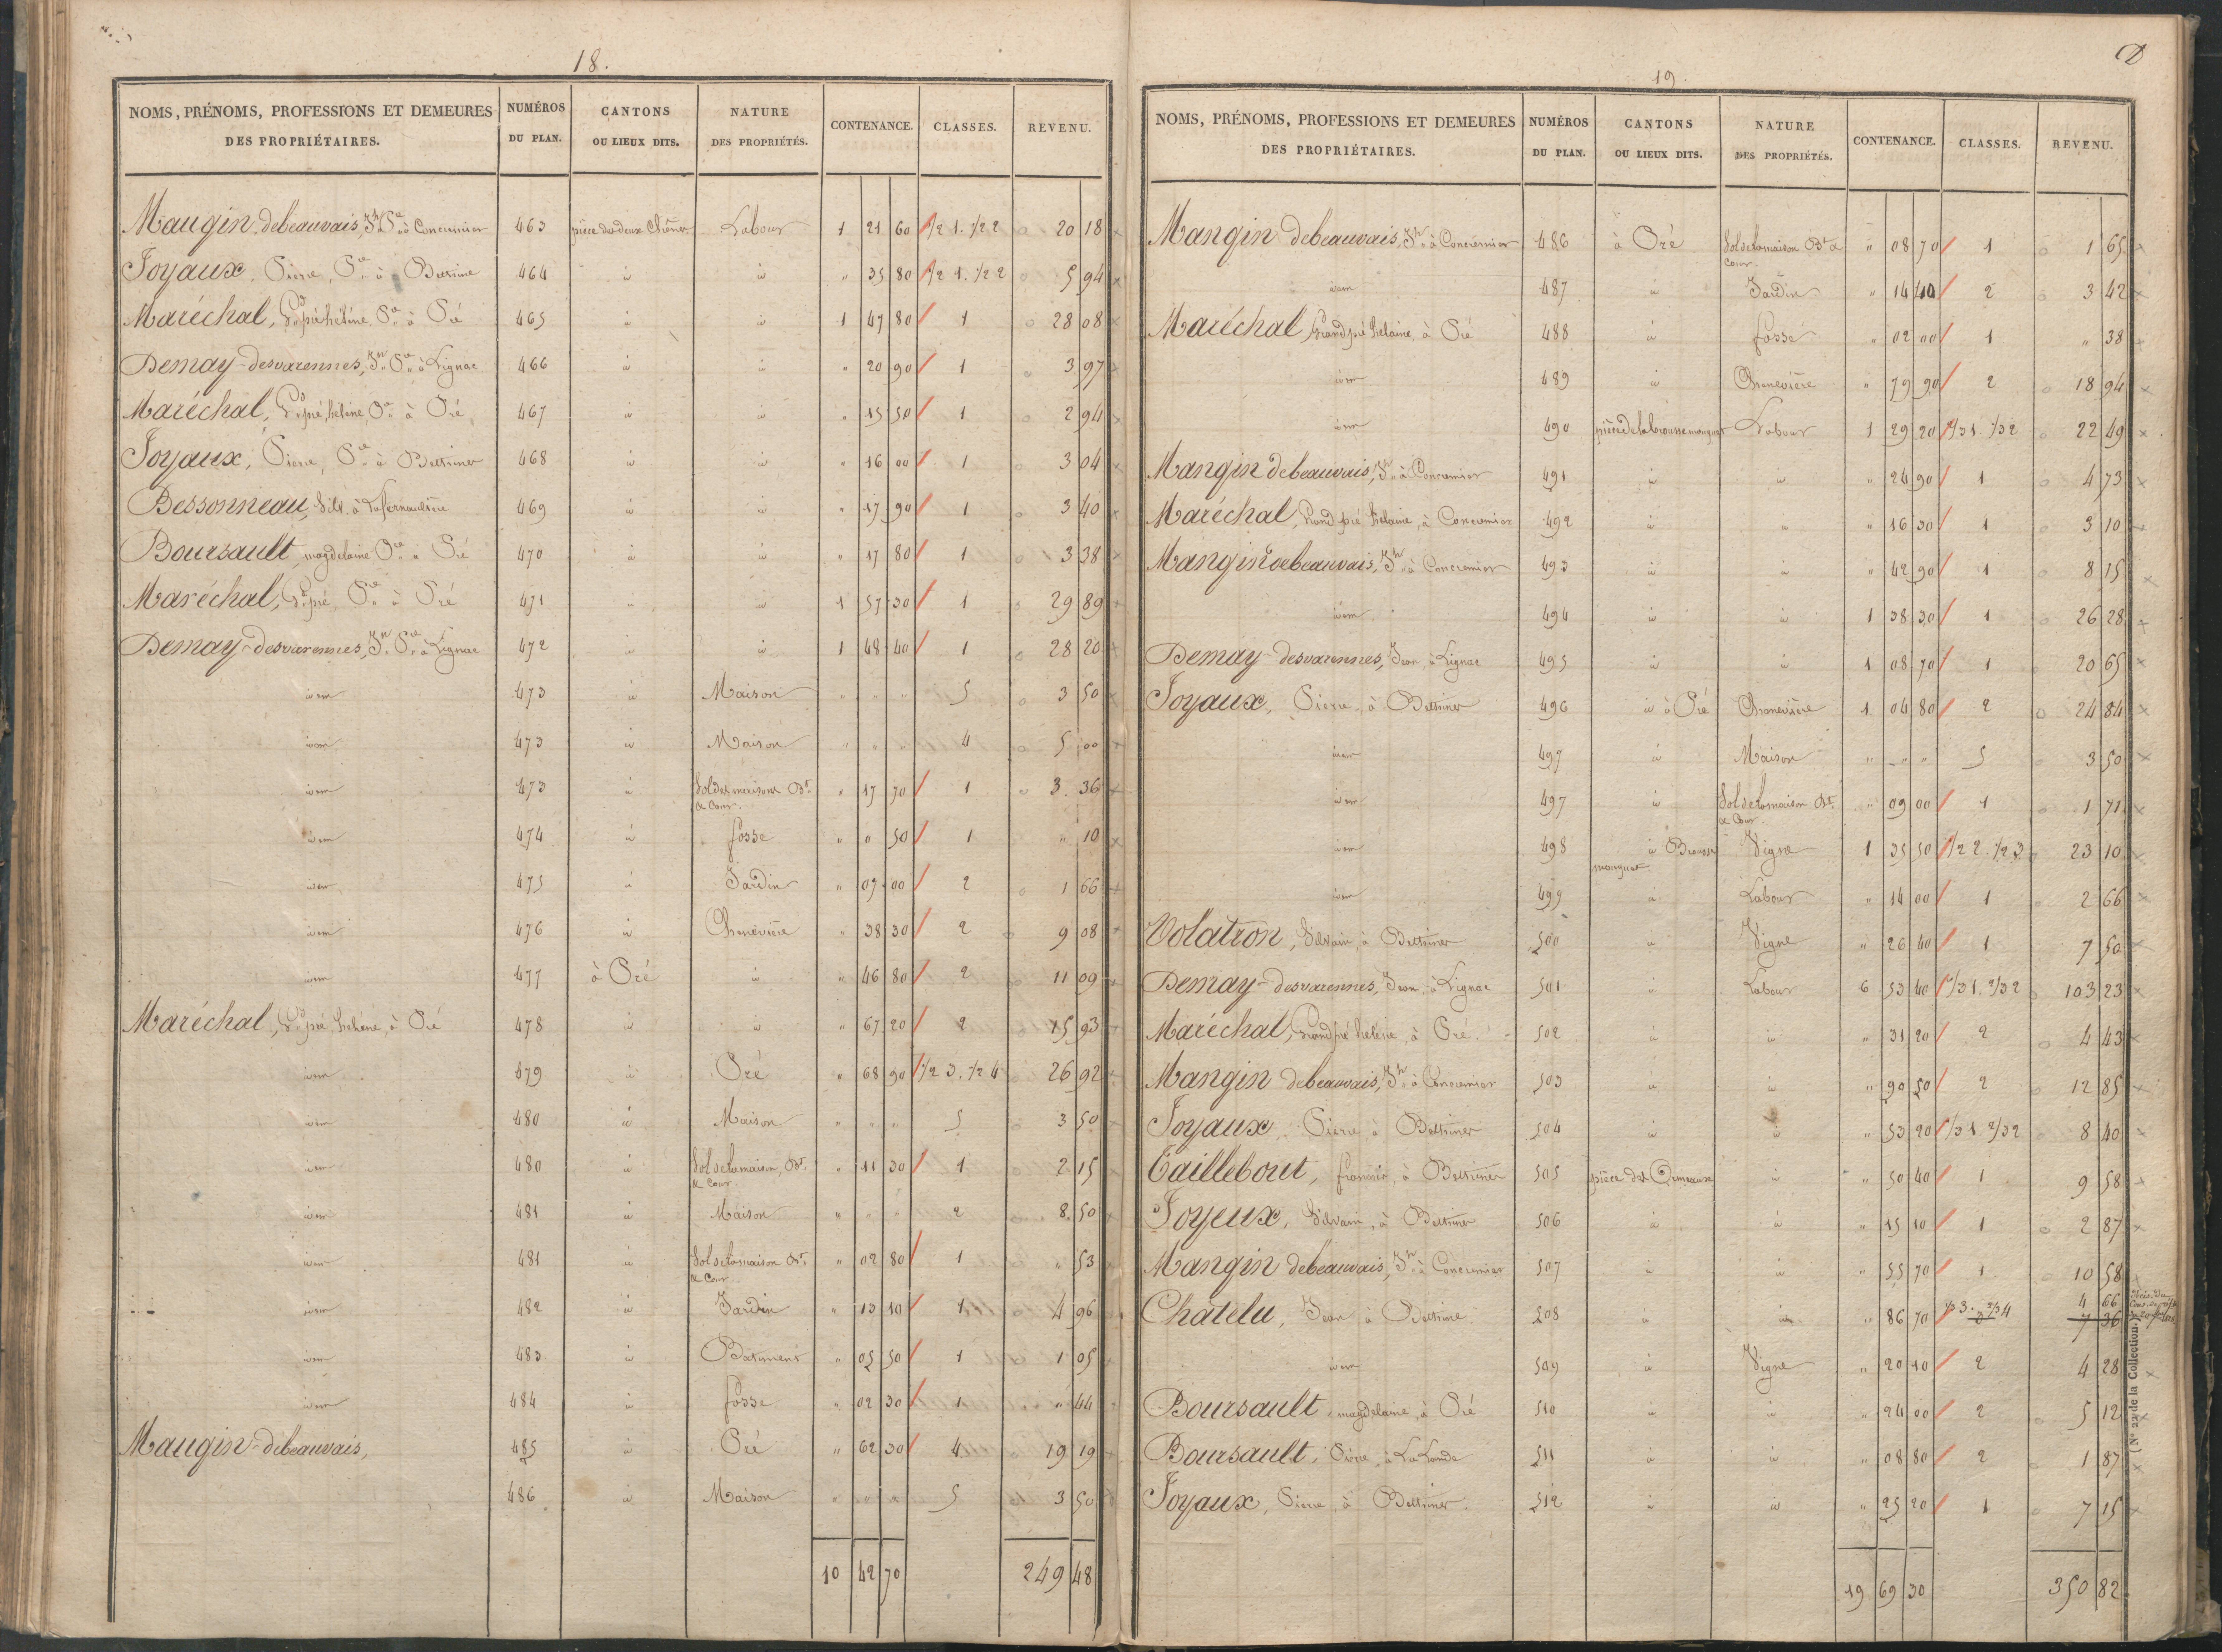 18.
NOMS, PRÉNOMS, PROFESSIONS ET DEMEURES DES PROPRIÉTAIRES. | NUMÉROS DU PLAN. | CANTONS OU LIEUX DITS. | NATURE DES PROPRIÉTÉS. | CONTENANCE. | CLASSES. | REVENU.
Maugin debeauvais, Jh Pre à Concremier 463 pièce des deux Chênes Labour 1 21 60 1/2 1. 1/2 2 20 18
Joyaux, Pierre, Pre à Bellimer 464 id id " 35 80 1/2 1. 1/2 2 5 94
Maréchal, Gd pré hélène Pre à Pré 465 id id 1 47 80 1 28 08
Demay-desvarennes, Jn Pre à Lignac 466 id id " 20 90 1 3 97
Maréchal, Gd pré, hélène Pre à Pré 467 id id " 15 50 1 2 94
Joyaux, Pierre, Pre à Bellimer 468 id id " 16 00 1 3 04
Bessonneau, Silv. à 469 id id " 17 90 1 3 40
Boursault, magdelaine Pre à Pré 470 id id " 17 80 1 3 38
Maréchal, Gd pré, Pre à Pré 471 id id 1 57 30 1 29 89
Demay-desvarennes, Jn Pre à Lignac 472 id id 1 48 40 1 28 20
idem 473 id Maison " " " 5 3 50
idem 473 id Maison " " " 4 5 00
idem 473 id Sol des maisons Bt. & Cour. " 17 70 1 3 36
idem 474 id fosse " " 50 1 " 10
idem 475 id Jardin " 07 00 2 1 66
idem 476 id Chenevière " 38 30 2 9 08
idem 477 à Pré id " 46 80 2 11 09
Maréchal, Gd pré, helène, à Pré 478 id id " 67 20 2 15 93
idem 479 id Pré " 68 90 1/2 3. 1/2 4 26 92
idem 480 id Maison " " " 5 3 50
idem 480 id Sol de la maison, Bt. & Cour. " 11 30 1 2 15
idem 481 id Maison " " " 2 8 50
idem 481 id Sol de la maison Bt. & Cour " 02 80 1 " 53
idem 482 id Jardin " 13 10 1 4 96
idem 483 id Batiment " 05 50 1 1 05
idem 484 id fosse " 02 30 1 " 44
Maugin-debeauvais, 485 id Pré " 62 30 4 19 19
486 id Maison " " " 5 3 50
10 42 70 249 48
19.
NOMS, PRÉNOMS, PROFESSIONS ET DEMEURES DES PROPRIÉTAIRES. | NUMÉROS DU PLAN. | CANTONS OU LIEUX DITS. | NATURE DES PROPRIÉTÉS. | CONTENANCE. | CLASSES. | REVENU.
Mangin debeauvais, Jh à Concremier 486 à Pré Sol de la maison Bt & Cour. " 08 70 1 1 65
idem 487 id Jardin " 14 40 2 3 42
Maréchal, Grand pré helaine, à Pré 488 id fosse " 02 00 1 " 38
idem 489 id Chenevière " 79 90 2 18 94
idem 490 pièce de la brousse mouquet Labour 1 29 20 1/3 1. 1/3 2 22 49
Mangin debeauvais, Jh à Concremier 491 id id " 24 90 1 4 73
Maréchal, Grand pré helaine, à Concremier 492 id id " 16 30 1 3 10
Mangin debeauvais, Jh à Concremier 493 id id " 42 90 1 8 15
idem 494 id id 1 38 30 1 26 28
Demay-desvarennes, Jean à Lignac 495 id id 1 08 70 1 20 65
Joyaux, Pierre, à Bellimer 496 id à Pré Chenevière 1 04 80 2 24 84
idem 497 id Maison " " " 5 3 50
idem 497 id Sol de la maison Bt. & Cour. " 09 00 1 1 71
idem 498 id Brousse mouquet Vigne 1 35 50 1/2 2. 1/2 3 23 10
idem 499 id Labour " 14 00 1 2 66
Volatron, Silvain, à Bellimer 500 id Vigne " 26 40 1 7 50
Demay-desvarennes, Jean à Lignac 501 id Labour 6 53 40 1/3 1. 2/3 2 103 23
Maréchal, Grand pré helène, à Pré 502 id id " 31 20 2 4 43
Mangin debeauvais, Jh à Concremier 503 id id " 90 50 2 12 85
Joyaux, Pierre, à Bellimer 504 id id " 53 20 1/3 1 2/3 2 8 40
Taillebout, françois, à Bellimer 505 pièce des Ormeaux id " 50 40 1 9 58
Joyeux, Silvain, à Bellimer 506 id id " 15 10 1 2 87
Mangin debeauvais, Jh à Concremier 507 id id " 55 70 1 10 58
Chatelu, Jean, à Bellime 508 id id " 86 70 1/3 3. 2/3 4 4 66 7 36
idem 509 id Vigne " 20 10 2 4 28
Boursault, magdelaine, à Pré 510 id id " 24 00 2 5 12
Boursault, Pierre, à La Lande 511 id id " 08 80 2 1 87
Joyaux, Pierre, à Bellimer 512 id id " 25 20 1 7 15
19 69 30 350 82
(N° 22 de la Collection.)